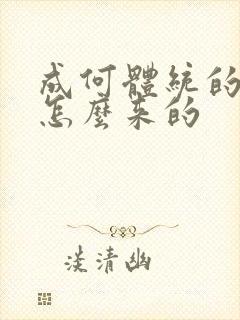 成何體統的
怎麼來的
淡清幽